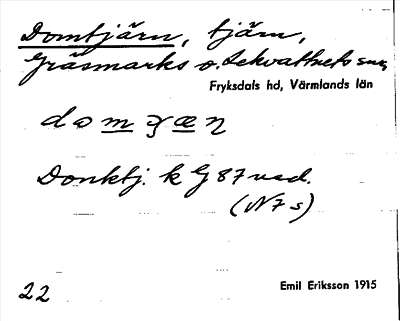 Domtjärn, tjärn,
Gräsmarks o. Lekvattnets snr,
Fryksdals hd, Värmlands län
Donktj. k G 87 vad.
(N7s)
22
Emil Eriksson 1915